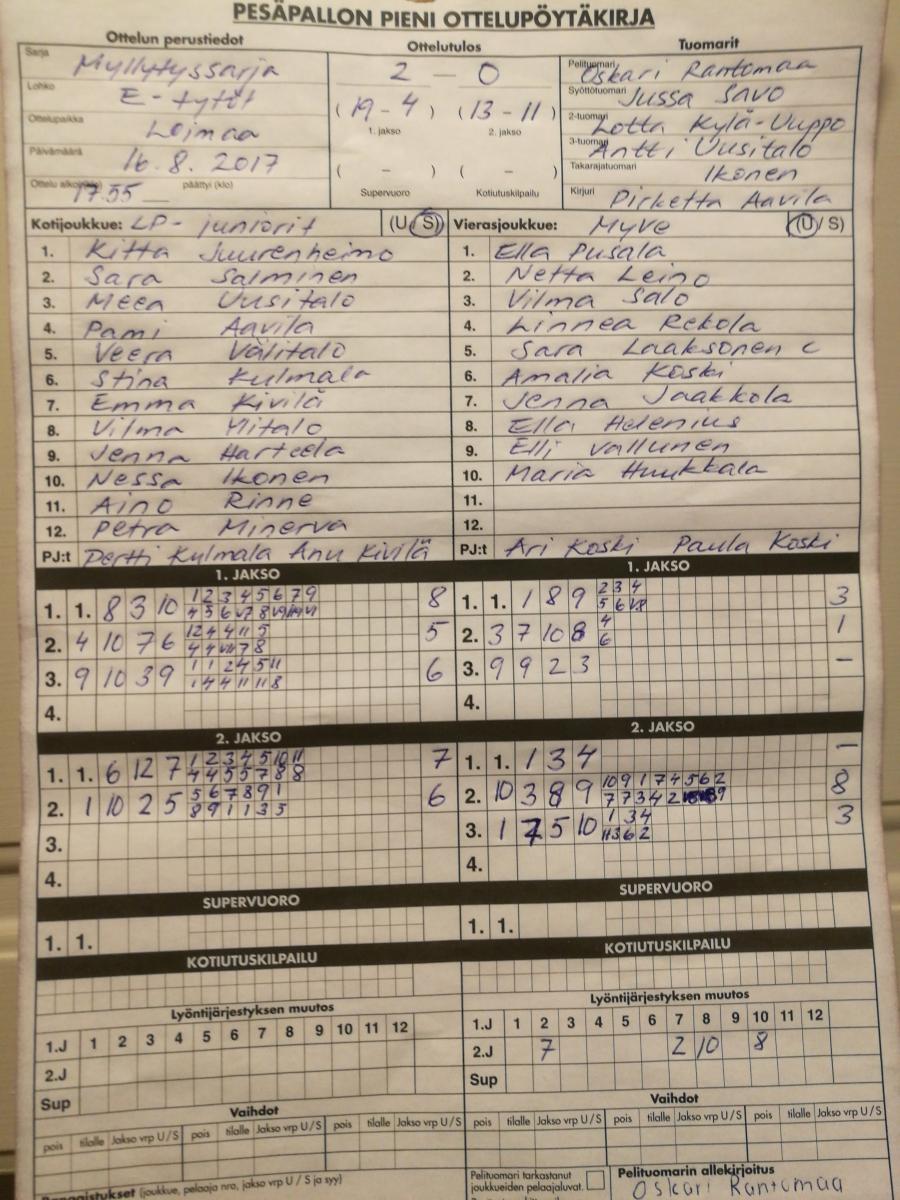 PESÄPALLON PIENI OTTELUPÖYTÄKIRJA
Ottelun perustiedot
Sarja Myllytyssarja
Lohko E-tytöt
Ottelupaikka Loimaa
Päivämäärä 16.8.2017
17.55 päättyi (klo)
Ottelutulos
2 – 0
(19 – 4) (13 – 11)
1. jakso 2. jakso
( – ) ( – )
Supervuoro Kotiutuskilpailu
Tuomarit
Pelituomari Oskari Rantamaa
Syöttötuomari Jussa Savo
2-tuomari Lotta Kylä-Uuppo
3-tuomari Antti Uusitalo
Takarajatuomari Ikonen
Kirjuri Pirketta Aavila
Kotijoukkue: LP-juniorit (U/S)
1. Kitta Juurenheimo
2. Sara Salminen
3. Meea Uusitalo
4. Pami Aavila
5. Veera Välitalo
6. Stina Kulmala
7. Emma Kivilä
8. Vilma Mitalo
9. Jenna Harteela
10. Nessa Ikonen
11. Aino Rinne
12. Petra Minerva
PJ:t Pertti Kulmala Anu Kivilä
Vierasjoukkue: Myve (U/S)
1. Ella Pusala
2. Netta Leino
3. Vilma Salo
4. Linnea Rekola
5. Sara Laaksonen C
6. Amalia Koski
7. Jenna Jaakkola
8. Ella Helenius
9. Elli Vallunen
10. Maria Huukkala
11.
12.
PJ:t Ari Koski Paula Koski
1. JAKSO
1. 1. 8 3 10 1 2 3 4 5 6 7 9 8
2. 4 10 7 6 5
3. 9 10 3 9 1 1 2 4 5 11 6
1 4 4 11 11 8
4.
1. JAKSO
1. 1. 1 8 9 2 3 4 3
5 6
2. 3 7 10 8 4 1
6
3. 9 9 2 3 –
4.
2. JAKSO
1. 1. 6 12 7 1 2 3 4 5 10 11 7
4 4 5 5 7 8 8
2. 1 10 2 5 5 6 7 8 9 1 6
8 9 1 1 3 5
3.
4.
2. JAKSO
1. 1. 1 3 4 –
2. 10 3 8 9 10 9 1 7 4 5 6 2 8
7 7 3 4 2
3. 1 7 5 10 1 3 4 3
4.
SUPERVUORO
1. 1.
SUPERVUORO
1. 1.
KOTIUTUSKILPAILU
KOTIUTUSKILPAILU
Lyöntijärjestyksen muutos
1.J 1 2 3 4 5 6 7 8 9 10 11 12
2.J
Sup
Lyöntijärjestyksen muutos
1.J 1 2 3 4 5 6 7 8 9 10 11 12
2.J 7 2 10 8
Sup
Vaihdot
pois tilalle Jakso vrp U/S pois tilalle Jakso vrp U/S pois tilalle Jakso vrp U/S
Vaihdot
pois tilalle Jakso vrp U/S pois tilalle Jakso vrp U/S pois tilalle Jakso vrp U/S
Rangaistukset (joukkue, pelaaja nro, jakso vrp U / S ja syy)
Pelituomari tarkastanut
joukkueiden pelaajaluvat.
Pelituomarin allekirjoitus
Oskari Rantamaa